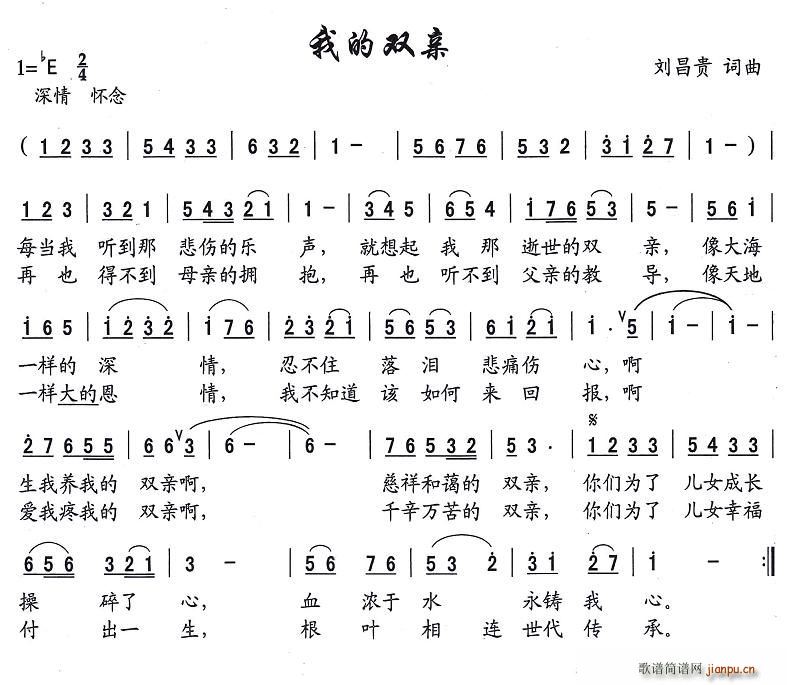 我的双亲
1=♭E 2/4
刘昌贵 词曲
深情 怀念
( 1 2 3 3 | 5 4 3 3 | 6 3 2 | 1 - | 5 6 7 6 | 5 3 2 | 3̇ 1̇ 2̇ 7 | 1 - ) |
1 2 3 | 3 2 1 | 5 4 3 2 1 | 1 - | 3 4 5 | 6 5 4 | 1̇ 7 6 5 3 | 5 - | 5 6 1̇ |
每当我 听到那 悲伤的乐 声，就想起 我 那 逝世的双 亲，像大海
再 也 得不到 母亲的拥 抱，再 也 听不到 父亲的教 导，像天地
1̇ 6 5 | 1̇ 2̇ 3̇ 2̇ | 1̇ 7 6 | 2̇ 3̇ 2̇ 1̇ | 5 6 5 3 | 6 1̇ 2̇ 1̇ | 1̇ · ∨ 5̇ | 1̇ - | 1̇ - |
一样的 深 情， 忍不住 落 泪 悲痛伤 心，啊
一样大的恩 情， 我不知道 该 如何 来 回 报，啊
𝄋
2̇ 7 6 5 5 | 6 6 ∨ 3̇ | 6 - | 6 - | 7 6 5 3 2 | 5 3 · | 1 2 3 3 | 5 4 3 3 |
生我养我的 双亲啊， 慈祥和蔼的 双亲，你们为了 儿女成长
爱我疼我的 双亲啊， 千辛万苦的 双亲，你们为了 儿女幸福
6 5 6 | 3 2 1 | 3 - | 5 6 7 6 | 5 3 2̇ | 3̇ 1̇ | 2̇ 7 | 1̇ - :‖
操 碎了 心， 血 浓于 水 永铸 我 心。
付 出一 生， 根 叶 相 连 世代 传 承。
歌谱简谱网 jianpu.cn